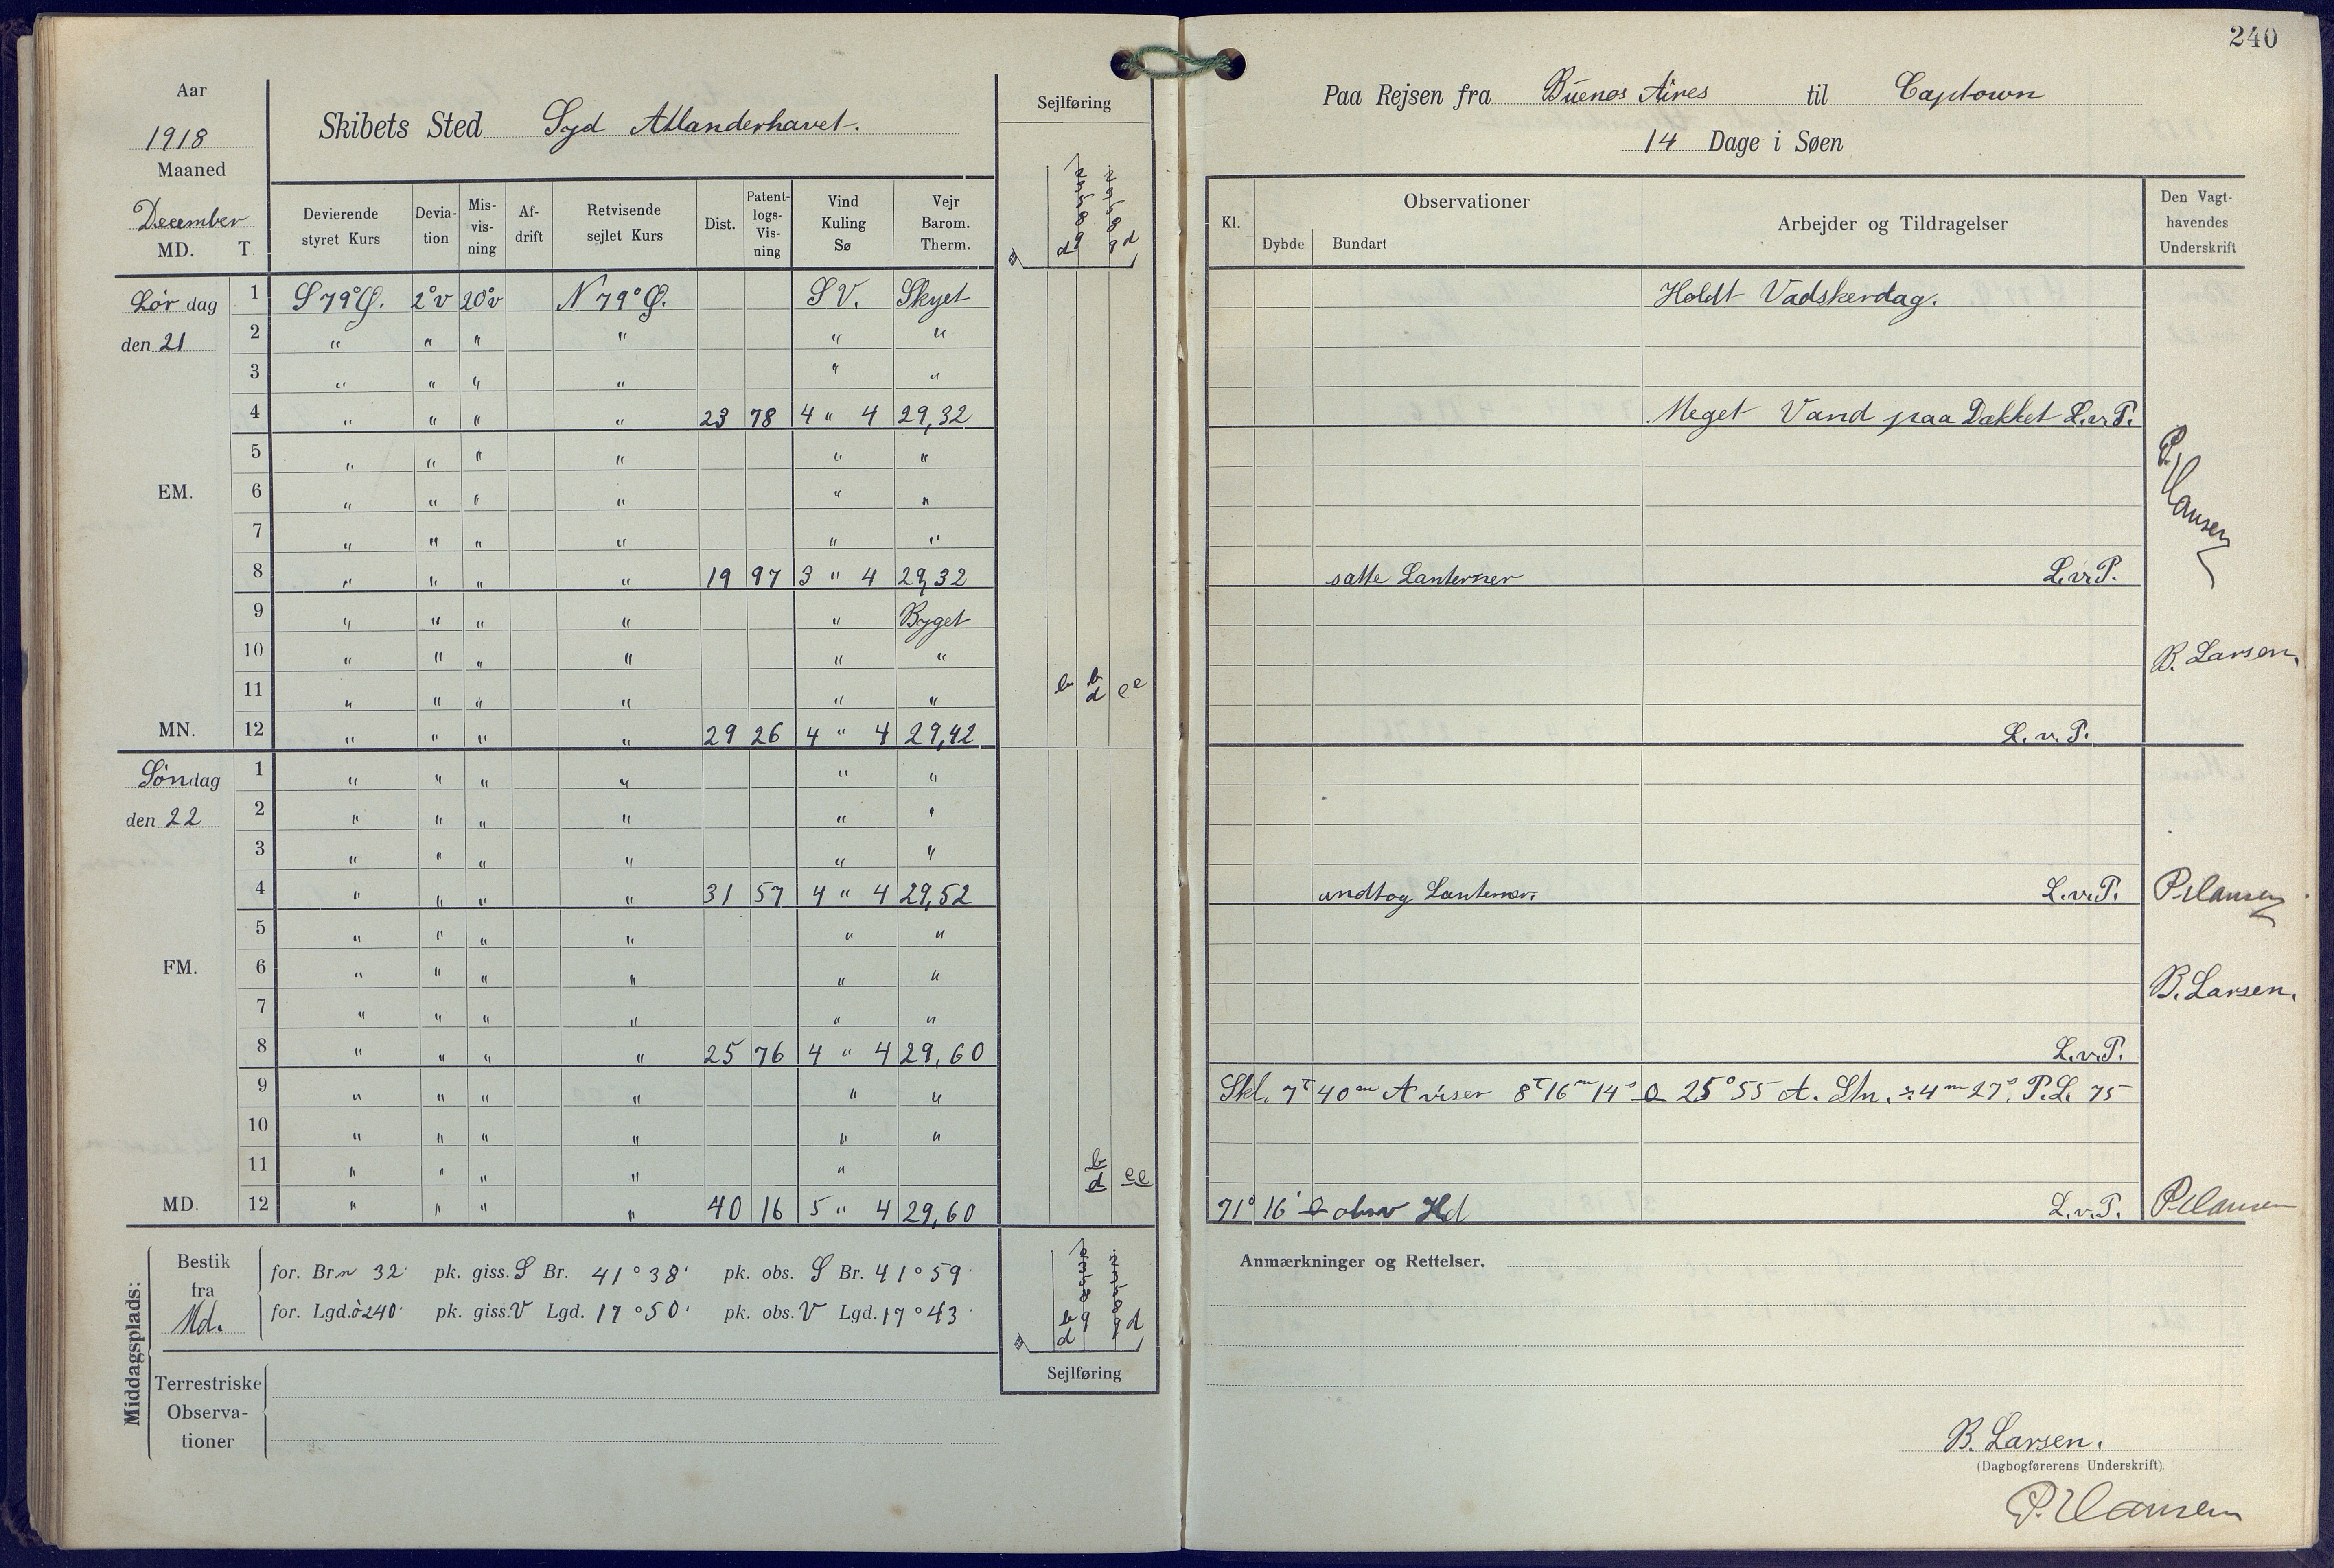 Aar
1918
Maaned
December
MD. T.
Skibets Sted Syd Atlanderhavet.
Sejlføring
Devierende styret Kurs
Devia-tion
Mis-vis-ning
Af-drift
Retvisende sejlet Kurs
Dist.
Patent-logs-Vis-ning
Vind Kuling Sø
Vejr Barom. Therm.
Lør dag 1 S 79° Ø. 2° v 20° v N 79° Ø. S V. Skyet
den 21 2 " " " " " "
3 " " " " " "
4 " " " " 23 78 4 " 4 29,32
5 " " " " " "
EM. 6 " " " " " "
7 " " " " " "
8 " " " " 19 97 3 " 4 29,32
9 " " " " " Byget
10 " " " " " "
11 " " " " " " b b d e e
MN. 12 " " " " 29 26 4 " 4 29,42
Søndag 1 " " " " " "
den 22 2 " " " " " "
3 " " " " " "
4 " " " " 31 57 4 " 4 29,52
5 " " " " " "
FM. 6 " " " " " "
7 " " " " " "
8 " " " " 25 76 4 " 4 29,60
9 " " " " " "
10 " " " " " "
11 " " " " " b d e e
MD. 12 " " " " 40 16 5 " 4 29,60
Middagsplads:
Bestik fra Md.
for. Br. n 32' pk. giss. S Br. 41° 38' pk. obs. S Br. 41° 59'
for. Lgd. ö 240' pk. giss. V Lgd. 17° 50' pk. obs. V Lgd. 17° 43'
Terrestriske Observa-tioner
Sejlføring
240
Paa Rejsen fra Buenos Aires til Captown
14 Dage i Søen
Kl.
Observationer
Dybde Bundart
Arbejder og Tildragelser
Den Vagt-havendes Underskrift
Holdt Vadskerdag.
Meget Vand paa Dækket L.v.P.
P. Hansen
satte Lanterner L.v.P.
B. Larsen.
L.v.P.
undtog Lanterner. L.v.P. P. Hansen
B. Larsen.
L.v.P.
Skl. 7t 40m A viser 8t 16m 14s 25° 55 A. Stn. 4m 27s. P.L. 75
71° 16' obsv Hd L.v.P. P. Hansen
Anmærkninger og Rettelser.
B. Larsen.
(Dagbogførerens Underskrift).
P. Hansen